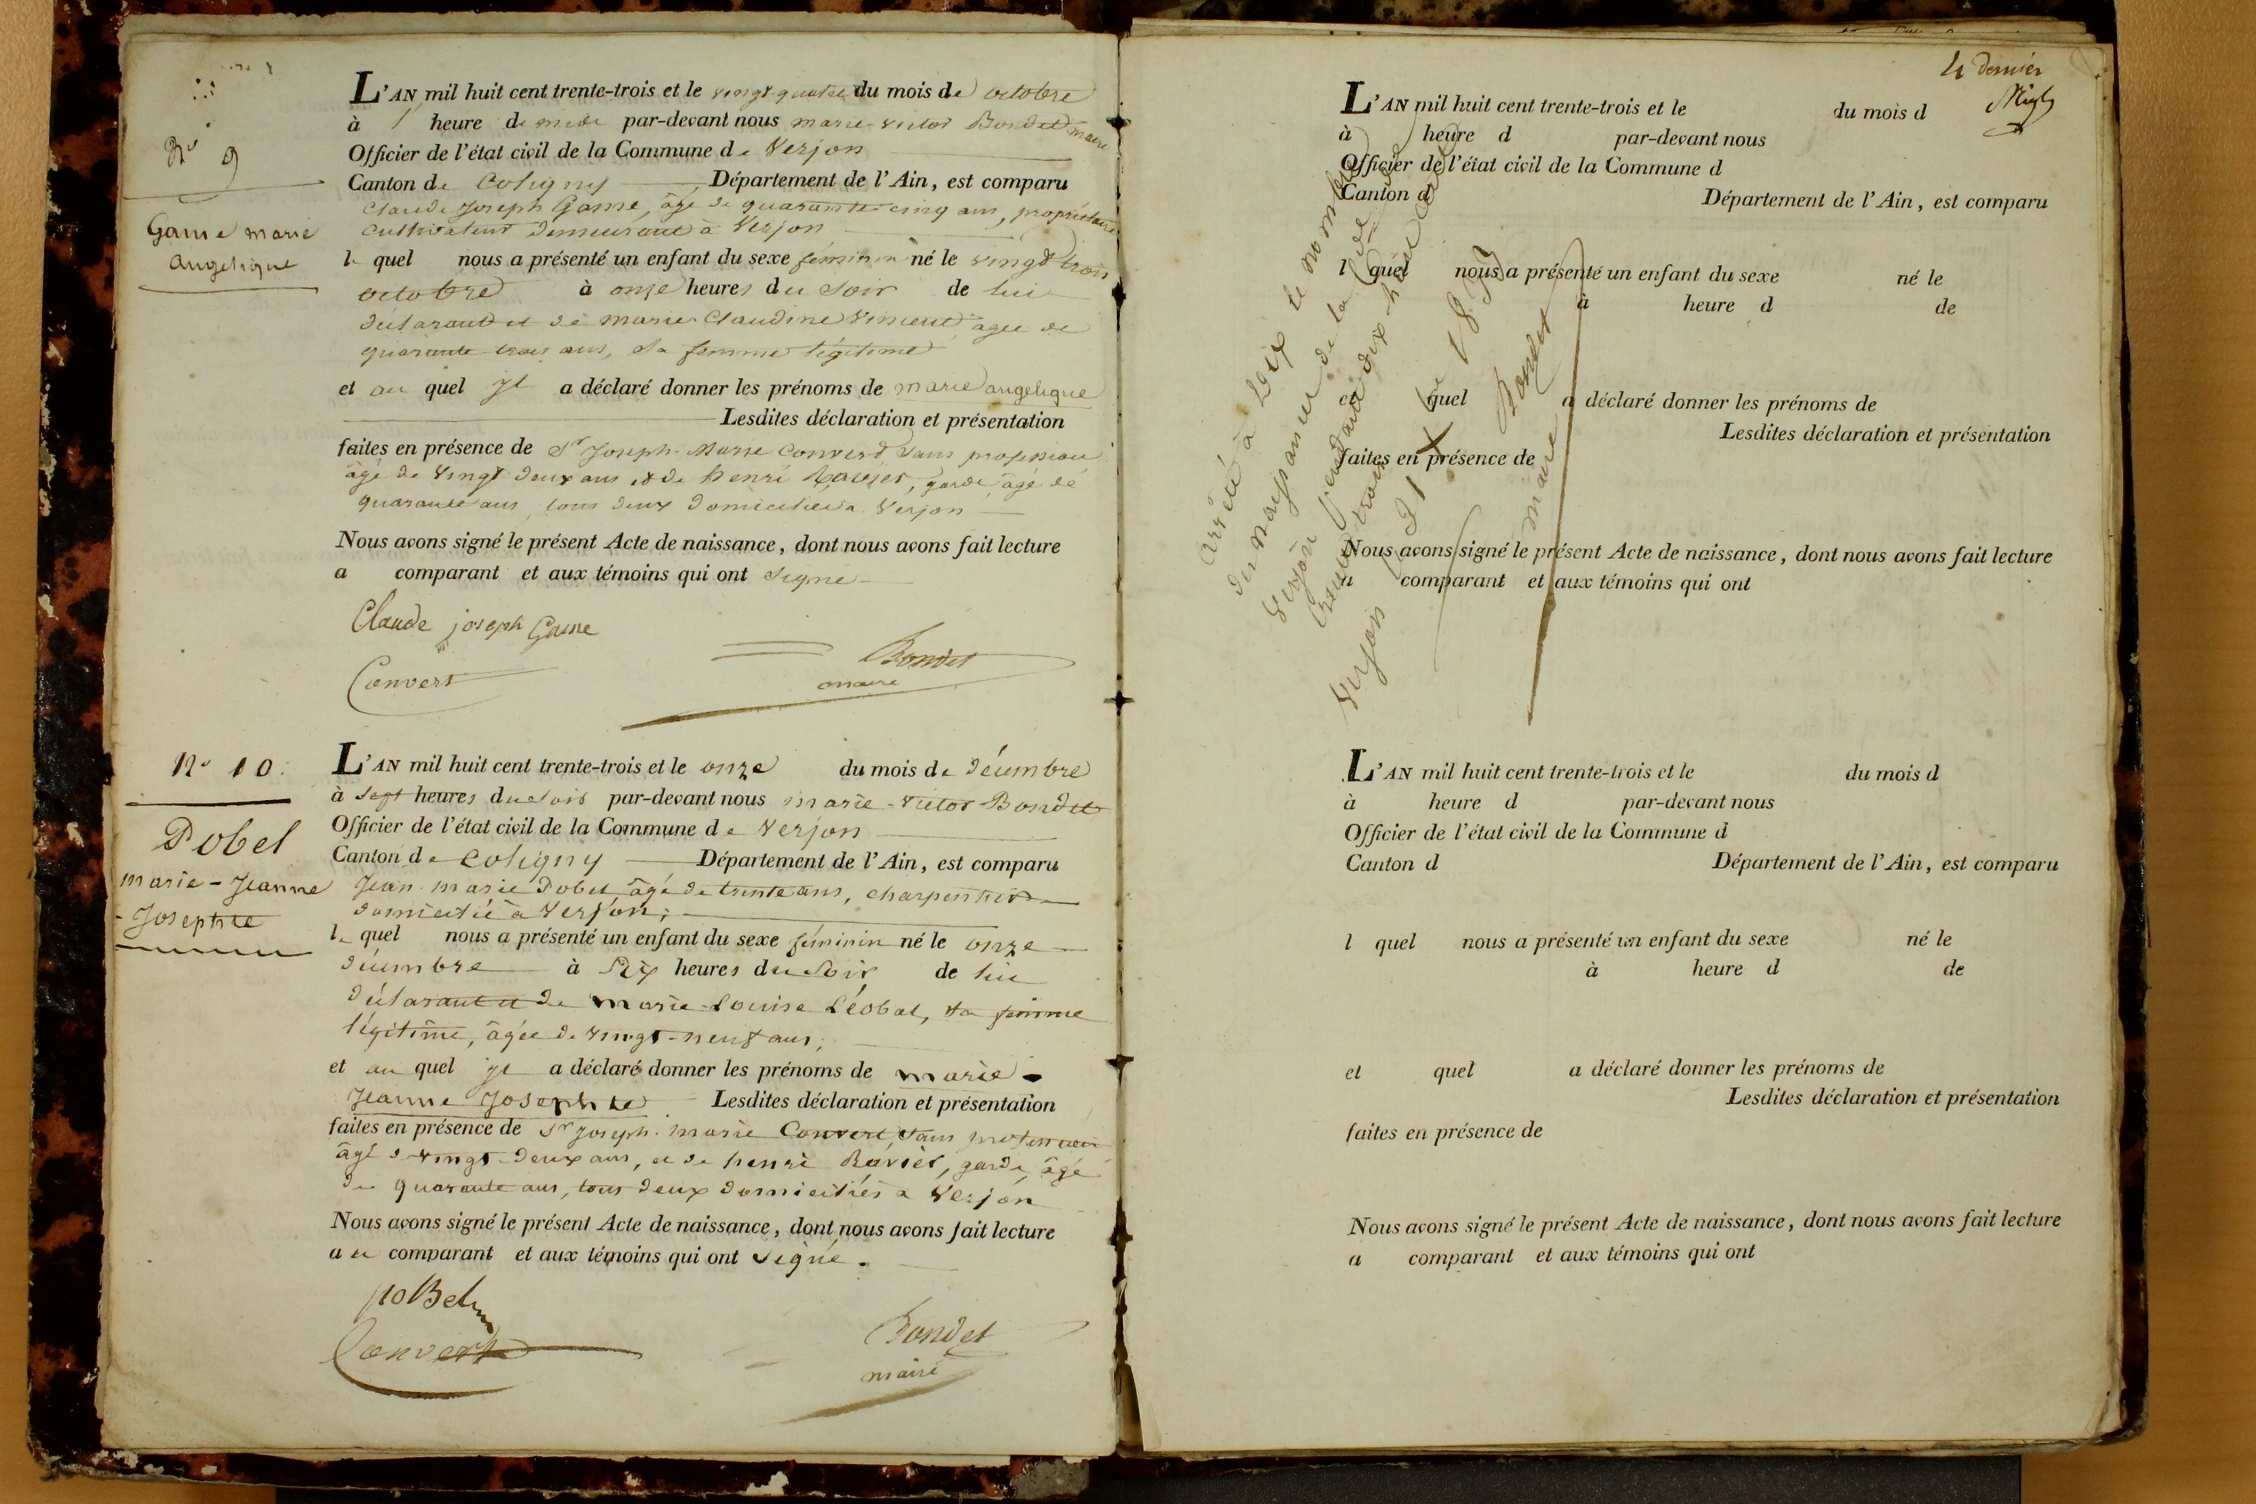 N° 9
Game marie
angelique
L'AN mil huit cent trente-trois et le vingt quatre du mois de octobre
à 1 heure de midi par-devant nous marie-victor Bondet maire
Officier de l'état civil de la Commune de Verjon
Canton de Coligny Département de l'Ain, est comparu
Claude Joseph Game, âgé de quarante cinq ans, propriétaire
cultivateur demeurant à Verjon
le quel nous a présenté un enfant du sexe féminin né le vingt trois
octobre à onze heures du soir de lui
déclarant et de marie Claudine Vincent, agée de
quarante trois ans, sa femme légitime
et au quel il a déclaré donner les prénoms de marie angelique
Lesdites déclaration et présentation
faites en présence de Sr Joseph-Marie Convert sans profession
âgé de vingt deux ans et de henri Ravier, garde, âgé de
quarante ans, tous deux domiciliés à Verjon
Nous avons signé le présent Acte de naissance, dont nous avons fait lecture
a comparant et aux témoins qui ont signé
Claude joseph Game
Convert
Bondet
maire
N° 10.
Dobel
marie-Jeanne
-Josephte
L'AN mil huit cent trente-trois et le onze du mois de décembre
à sept heures du soir par-devant nous marie-victor Bondet
Officier de l'état civil de la Commune de Verjon
Canton de Coligny Département de l'Ain, est comparu
Jean-marie Dobel âgé de trente ans, charpentier
domicilié à Verjon;
le quel nous a présenté un enfant du sexe féminin né le onze
décembre à six heures du soir de lui
déclarant et de marie-Louise Léobal, sa femme
légitime, âgée de vingt-neuf ans;
et au quel il a déclaré donner les prénoms de marie-
Jeanne Josephte Lesdites déclaration et présentation
faites en présence de Sr Joseph-marie Convert, sans profession
âgé de vingt-deux ans, et de henri Ravier, garde, âgé
de quarante ans, tous deux domiciliés à Verjon
Nous avons signé le présent Acte de naissance, dont nous avons fait lecture
au comparant et aux témoins qui ont signé.
DoBel
Convert
Bondet
maire
dernier
L'AN mil huit cent trente-trois et le du mois d
à heure d par-devant nous
Officier de l'état civil de la Commune d
Canton d Département de l'Ain, est comparu
l quel nous a présenté un enfant du sexe né le
à heure d de
et quel a déclaré donner les prénoms de
Lesdites déclaration et présentation
faites en présence de
Nous avons signé le présent Acte de naissance, dont nous avons fait lecture
a comparant et aux témoins qui ont
arrêté à dix le nombre
des naissances de la Cne de
Verjon pendant dix huit cent
trente trois
Verjon le 31 Xbre 1833
Bondet
maire
L'AN mil huit cent trente-trois et le du mois d
à heure d par-devant nous
Officier de l'état civil de la Commune d
Canton d Département de l'Ain, est comparu
l quel nous a présenté un enfant du sexe né le
à heure d de
et quel a déclaré donner les prénoms de
Lesdites déclaration et présentation
faites en présence de
Nous avons signé le présent Acte de naissance, dont nous avons fait lecture
a comparant et aux témoins qui ont